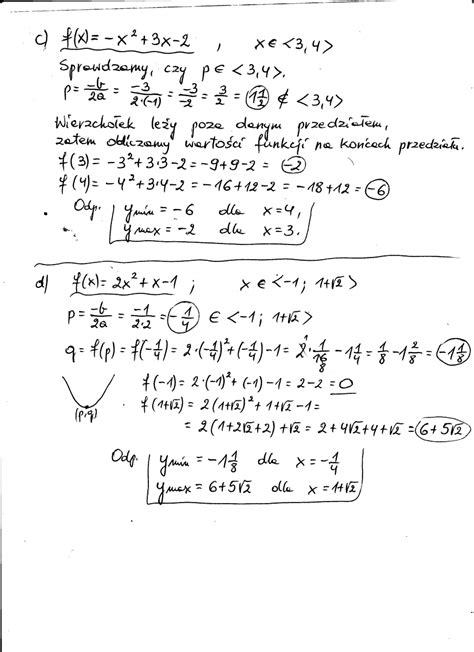 c) f(x) = -x² + 3x - 2 , x ∈ <3,4>
Sprawdzamy, czy p ∈ <3,4>.
p = -b/2a = -3/2·(-1) = -3/-2 = 3/2 = 1 1/2 ∉ <3,4>
Wierzchołek leży poza danym przedziałem,
zatem obliczamy wartości funkcji na końcach przedziału.
f(3) = -3² + 3·3 - 2 = -9 + 9 - 2 = -2
f(4) = -4² + 3·4 - 2 = -16 + 12 - 2 = -18 + 12 = -6
Odp. ymin = -6 dla x = 4,
ymax = -2 dla x = 3.
d) f(x) = 2x² + x - 1 ; x ∈ <-1 ; 1+√2>
p = -b/2a = -1/2·2 = -1/4 ∈ <-1 ; 1+√2>
q = f(p) = f(-1/4) = 2·(-1/4)² + (-1/4) - 1 = 2·1/16 - 1 1/4 = 1/8 - 1 2/8 = -1 1/8
f(-1) = 2·(-1)² + (-1) - 1 = 2 - 2 = 0
(p,q) f(1+√2) = 2(1+√2)² + 1+√2 - 1 =
= 2(1+2√2+2) + √2 = 2 + 4√2 + 4 + √2 = 6 + 5√2
Odp. ymin = -1 1/8 dla x = -1/4
ymax = 6 + 5√2 dla x = 1+√2